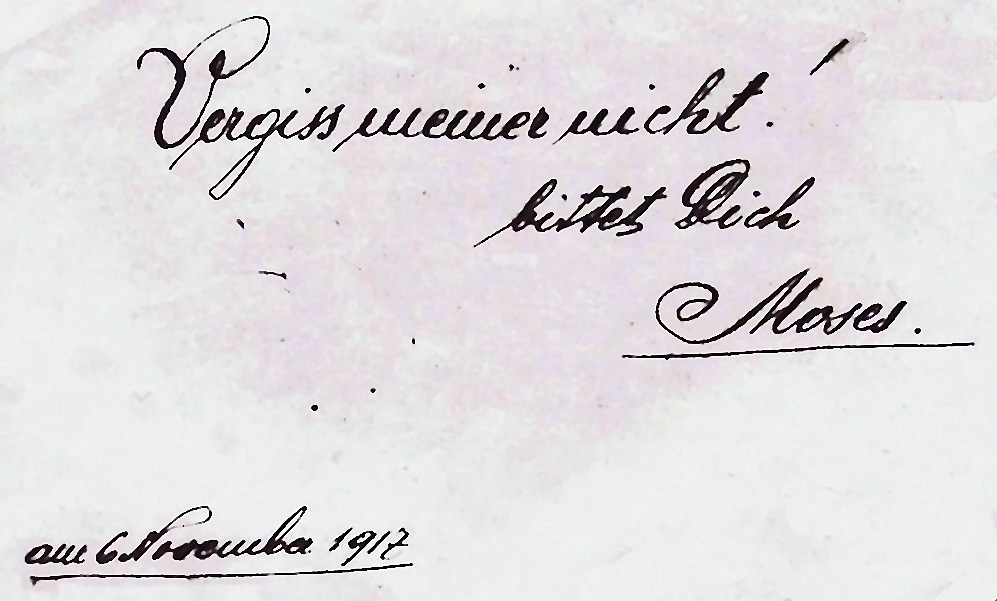 Vergiss meiner nicht!
bittet Dich
Moses.
am 6 November 1917